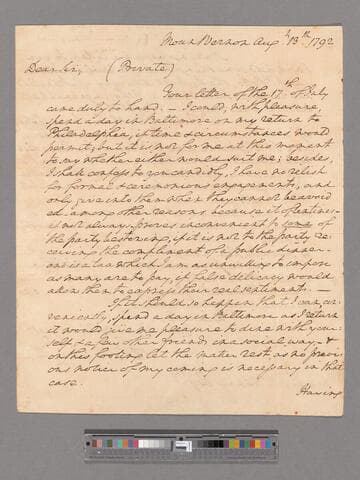 Mount Vernon Aug.t 13.th 1792
Dear Sir, (Private)
Your letter of the 17.th of July
came duly to hand. — I could, with pleasure,
spend a day in Baltimore on my return to
Philadelphia, if time & circumstances would
permit; but it is not for me at this moment
to say whether either would suit me; besides,
I shall confess to you candidly, I have no relish
for formal & ceremonious engagements, and
only give into them when they cannot be avoid
ed — among other reasons because it oftentimes
if not always proves inconvenient to some of
the party bestowing, if it is not to the party re-
ceiving the compliment of a public dinner —
and is a tax which I am as unwilling to impose
as many are to pay, if false delicacy would
allow them to express their real sentiments. —
If it should so happen that I can, con-
veniently, spend a day in Baltimore as I return
it would give me pleasure to dine with your-
self & a few other friends in a social way — &
on this footing let the matter rest, as no previ-
ous notice of my coming is necessary in that
case.
Having